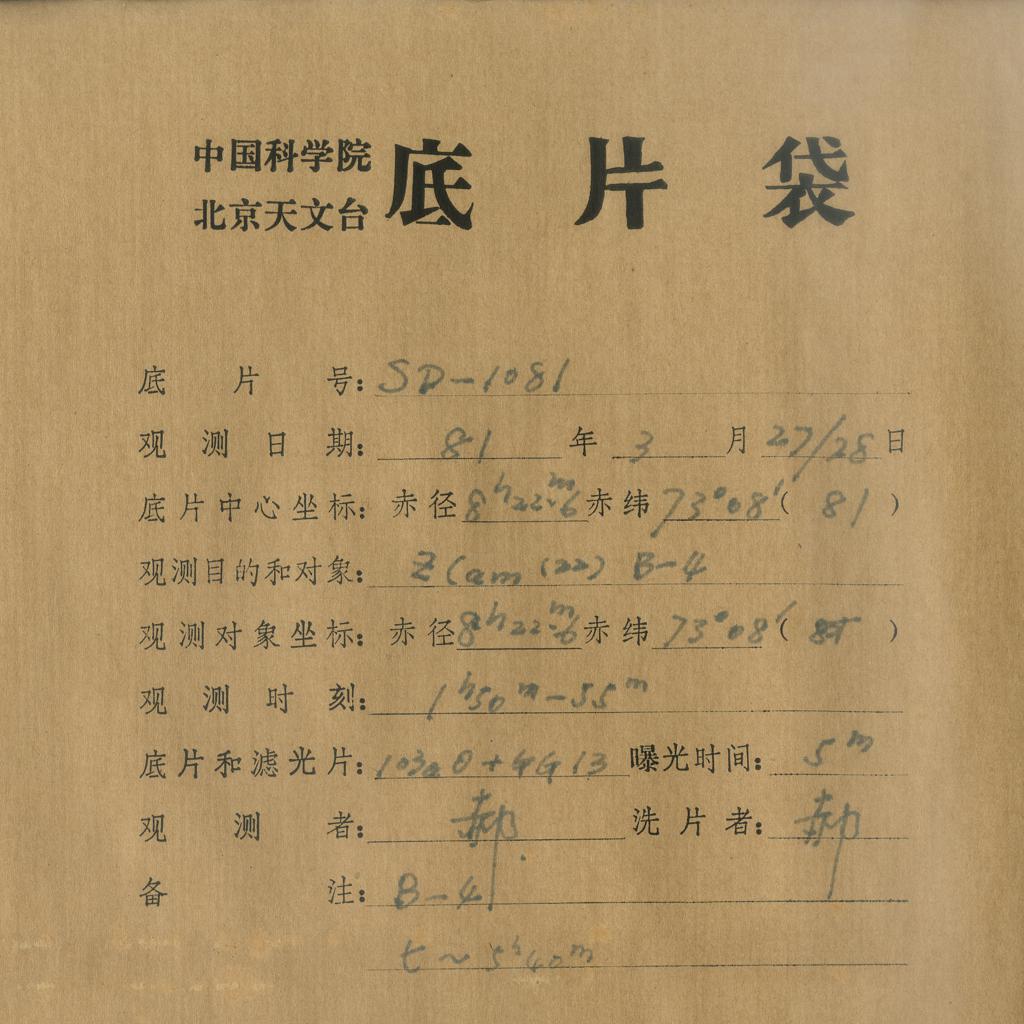 中国科学院
北京天文台
底片袋
底片号: SD-1081
观测日期: 81年3月27/28日
底片中心坐标: 赤径8h22m.6赤纬73°08′(81)
观测目的和对象: Z Cam (22) B-4
观测对象坐标: 赤径8h22m.6赤纬73°08′( )
观测时刻: 1h50m-55m
底片和滤光片: 103aO+GG13 曝光时间: 5m
观测者: 郝 洗片者: 郝
备注: B-4
t~5h40m